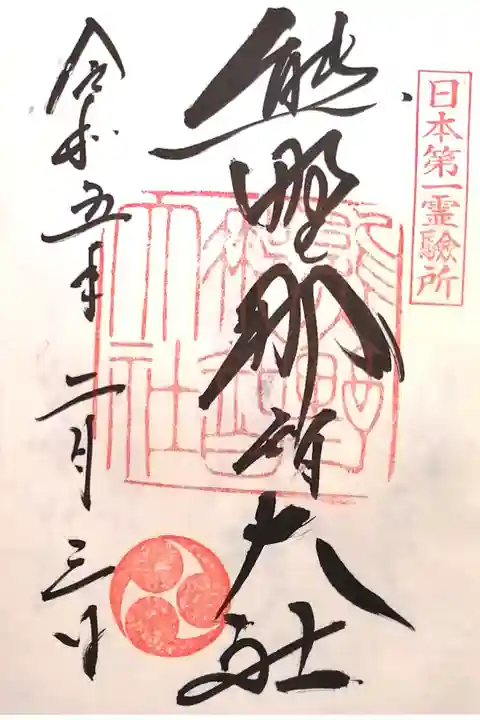 日本第一霊験所
熊野那智大社
令和五年 二月 三日